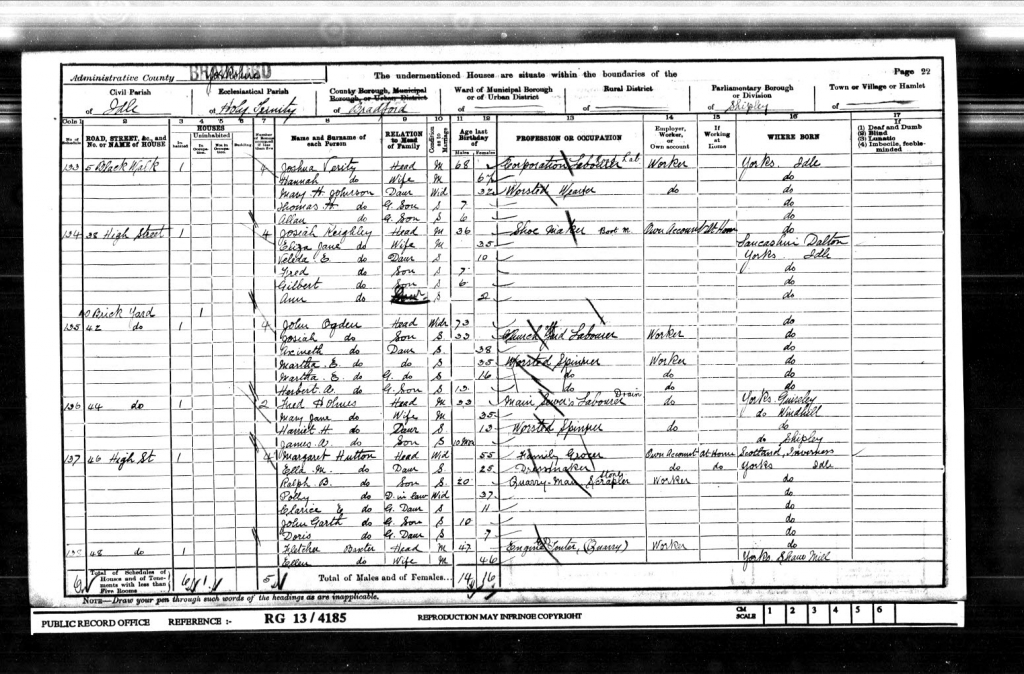 Administrative County Yorkshire The undermentioned Houses are situate within the boundaries of the Page 22
Civil Parish Ecclesiastical Parish County Borough, Municipal Borough, or Urban District Ward of Municipal Borough or of Urban District Rural District Parliamentary Borough or Division Town or Village or Hamlet
of Idle of Holy Trinity of Bradford of of of Shipley of
Cols. 1 2 3 4 5 6 7 8 9 10 11 12 13 14 15 16 17
ROAD, STREET, &c., and No. or NAME of HOUSE HOUSES Name and Surname of each Person RELATION to Head of Family Condition as to Marriage Age last Birthday of PROFESSION OR OCCUPATION Employer, Worker, or Own account If Working at Home WHERE BORN If (1) Deaf and Dumb (2) Blind (3) Lunatic (4) Imbecile, feeble-minded
Inhabited Uninhabited In Occupation Not in Occupation Building Males Females
133 5 Walk 1 Joshua Verity Head M 68 Corporation Labourer Worker Yorks. Idle
Hannah do Wife M 67 do
Mary H Johnson Daur Wid 32 Worsted Weaver do do
Thomas H. do G. Son S 7 do
Allan do G. Son S 6 do
134 38 High Street 1 4 Josiah Keighley Head M 36 Shoe Maker Boot M. Own Account At Home do
Eliza Jane do Wife M 35 Lancashire Dalton
E. do Daur S 10 Yorks. Idle
Fred do Son S 7 do
Gilbert do Son S 6 do
Ann do Daur S 2 do
40 Brick Yard 1
135 42 do 1 4 John Ogden Head Widr 73 do
Josiah do Son S 33 Labourer Worker do
do Daur S 38 do
Martha E. do do S 35 Worsted Spinner Worker do
Martha E. do G. do S 16 do do do
Herbert A. do G. Son S 13 do do do
136 44 do 1 2 Fred Holmes Head M 33 Main Sewer's Labourer Drain do Yorks. Guiseley
Mary Jane do Wife M 35 do Windhill
Harriet H. do Daur S 13 Worsted Spinner do do
James A. do Son S 10 Mos do Shipley
137 46 High St 1 4 Margaret Hutton Head Wid 55 Family Grocer Own Account At Home Scotland, Inverness
Ella M. do Daur S 25 Dressmaker do do Yorks Idle
Ralph B. do Son S 20 Quarry-Man Stone Scrapler Worker do
Polly do D. in law Wid 37 do
Clarice E do G. Daur S 11 do
John Garth do G. Son S 10 do
Doris do G. Daur S 7 do
138 48 do 1 Fletcher Baxter Head M 47 Engine (Quarry) Worker do
Ellen do Wife M 46 Yorks.
6 Total of Schedules of Houses and of Tenements with less than Five Rooms 6 1 5 Total of Males and of Females... 14 16
NOTE—Draw your pen through such words of the headings as are inapplicable.
PUBLIC RECORD OFFICE REFERENCE :- RG 13/4185 REPRODUCTION MAY INFRINGE COPYRIGHT CM SCALE 1 2 3 4 5 6